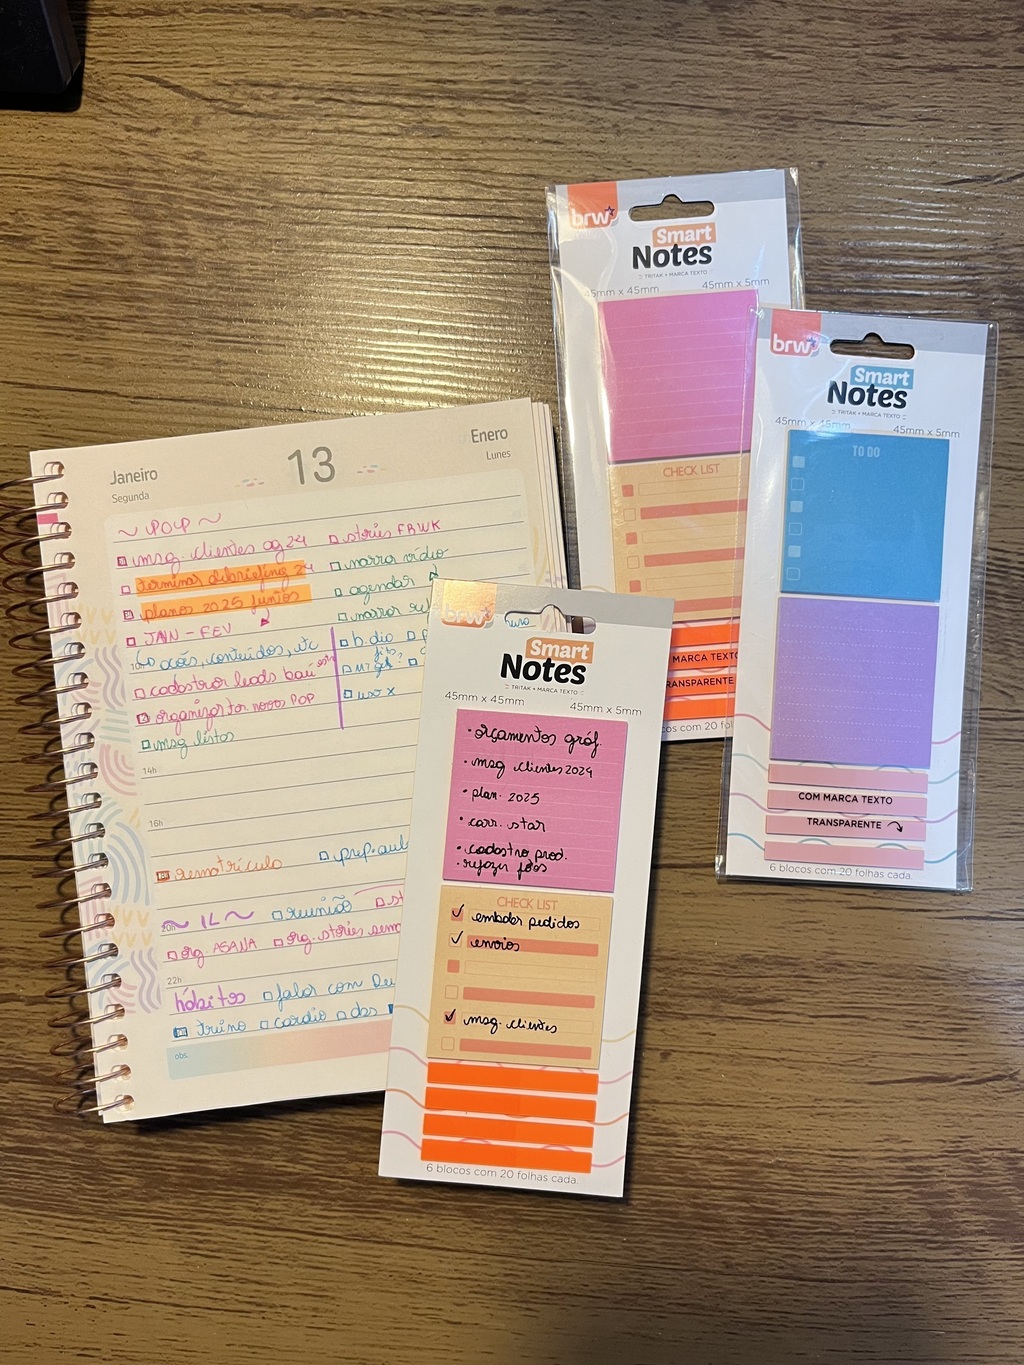 brw
Smart
Notes
TRITAK + MARCA TEXTO
45mm x 45mm
45mm x 5mm
CHECK LIST
MARCA TEXTO
TRANSPARENTE
com 20
brw
Smart
Notes
TRITAK + MARCA TEXTO
45mm x 45mm
45mm x 5mm
TO DO
COM MARCA TEXTO
TRANSPARENTE
6 blocos com 20 folhas cada.
Janeiro
Segunda
13
Enero
Lunes
~ POP ~
msg. clientes ag 24
stories FBWK
terminar debriefing 24
narrar vídeo
planos 2025 juntos
agendar
JAN - FEV
narrar
ações, conteúdos, etc
b. dia
cadastrar leads baú
organizar tar novos POP
uso x
msg listas
14h
16h
rematrícula
prep. aul
20h
~ IL ~
reunião
org ASANA
org. stories sem
22h
hábitos
falar com
treino
cardio
obs
brw
Smart
Notes
TRITAK + MARCA TEXTO
45mm x 45mm
45mm x 5mm
• orçamentos gráf.
• msg clientes 2024
• plan. 2025
• carr. star
• cadastro prod.
• refazer fotos
CHECK LIST
embalar pedidos
envios
msg. clientes
6 blocos com 20 folhas cada.